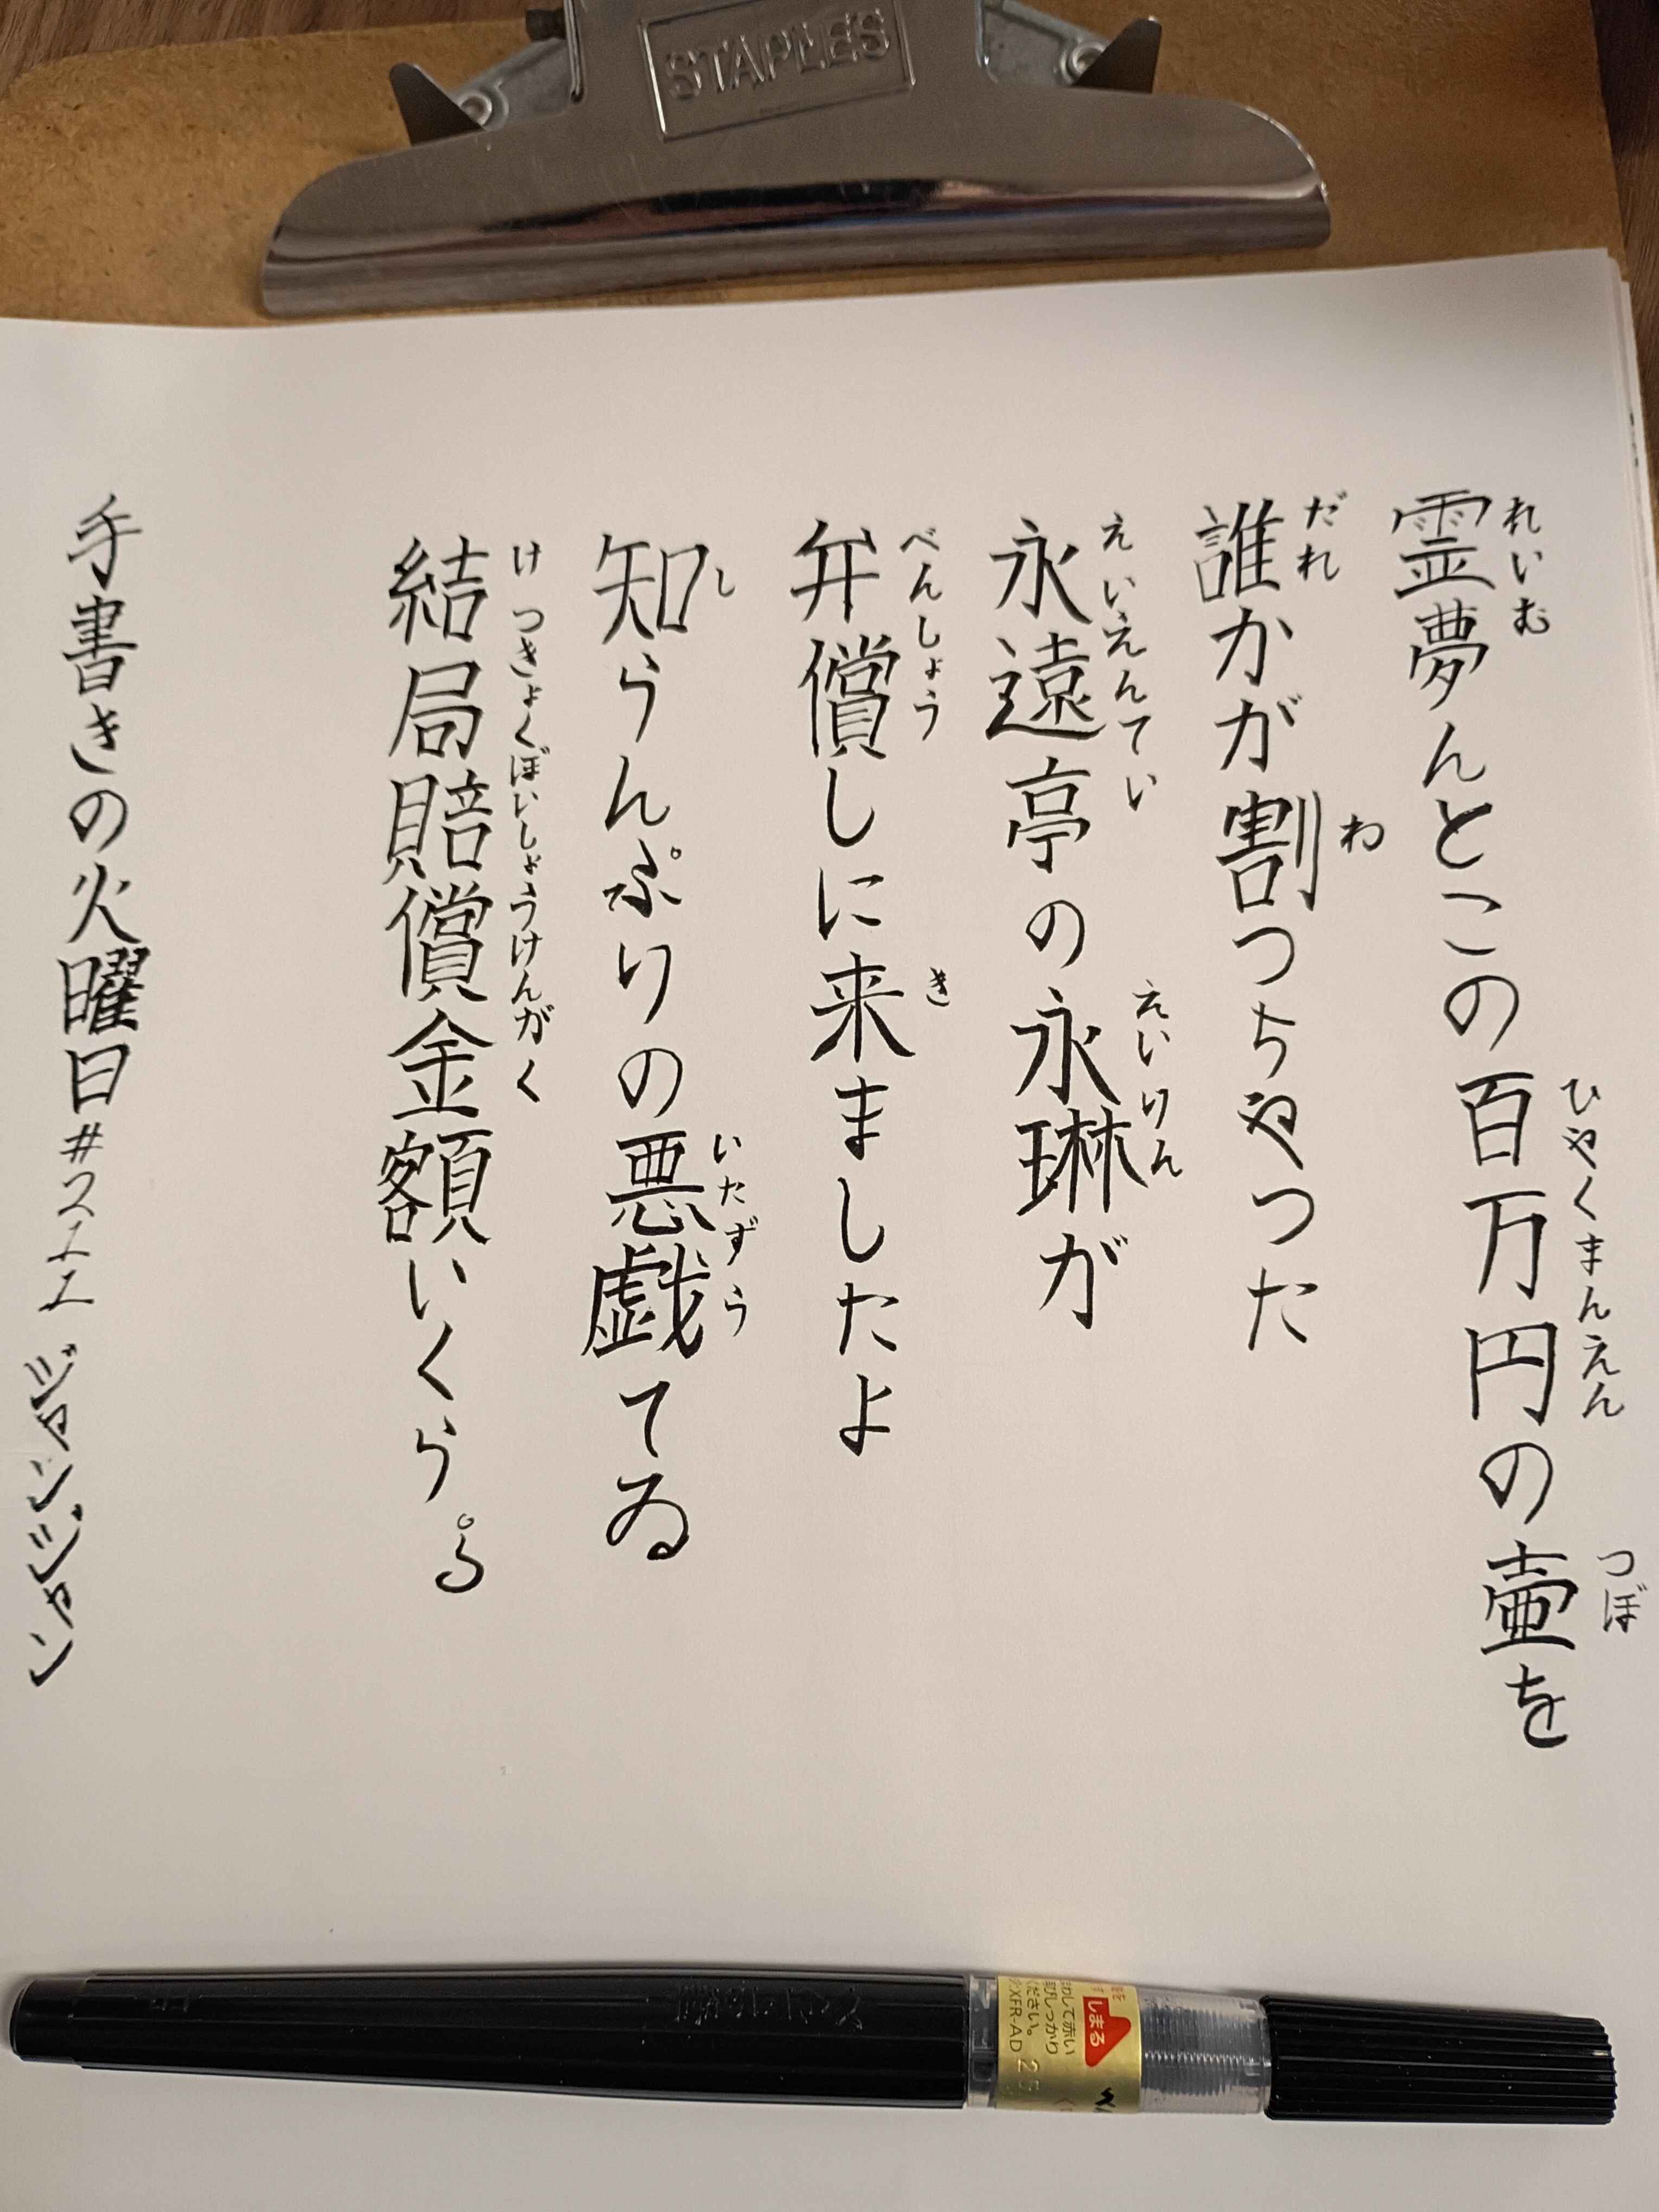 STAPLES
霊夢んとこの百万円の壷を
れいむ ひゃくまんえん つぼ
誰かが割つちやつた
だれ わ
永遠亭の永琳が
えいえんてい えいりん
弁償しに来ましたよ
べんしょう き
知らんぷりの悪戯てゐ
し いたずら
結局賠償金額いくら
けつきょくぼいしょうけんがく
手書きの火曜日#211 ジャンジャン
しまる
ださい。
XFR-AD